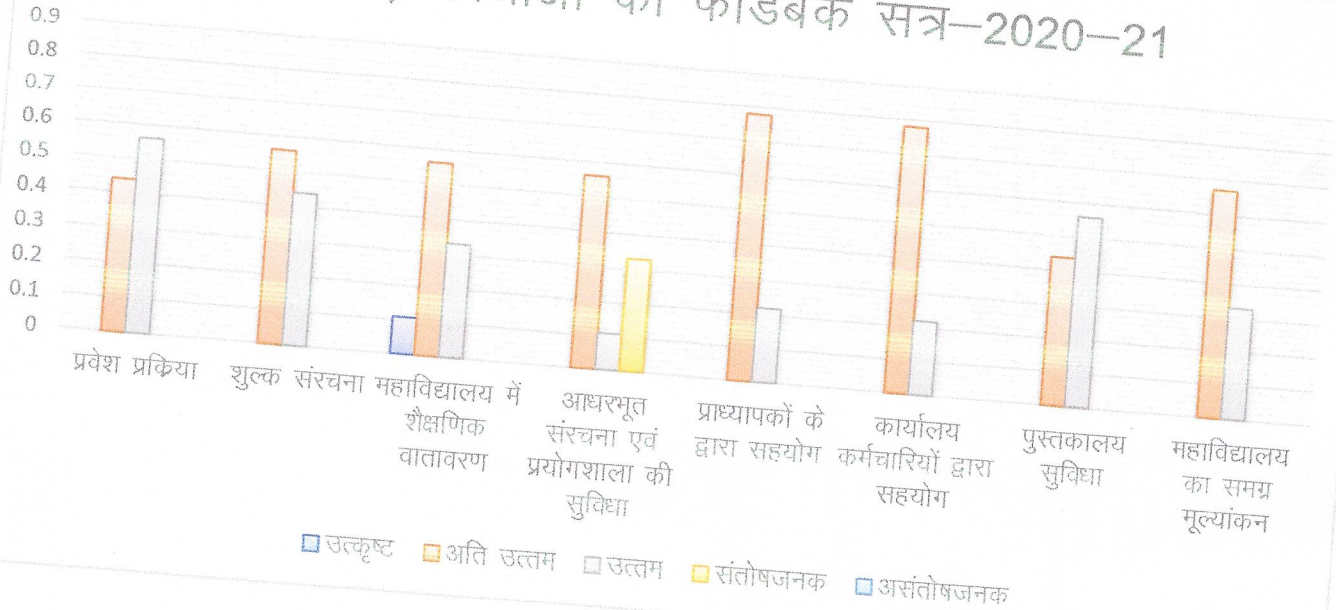 की फीडबैक सत्र–2020–21
0.9
0.8
0.7
0.6
0.5
0.4
0.3
0.2
0.1
0
प्रवेश प्रक्रिया
शुल्क संरचना
महाविद्यालय में
शैक्षणिक
वातावरण
आधरभूत
संरचना एवं
प्रयोगशाला की
सुविधा
प्राध्यापकों के
द्वारा सहयोग
कार्यालय
कर्मचारियों द्वारा
सहयोग
पुस्तकालय
सुविधा
महाविद्यालय
का समग्र
मूल्यांकन
उत्कृष्ट अति उत्तम उत्तम संतोषजनक असंतोषजनक